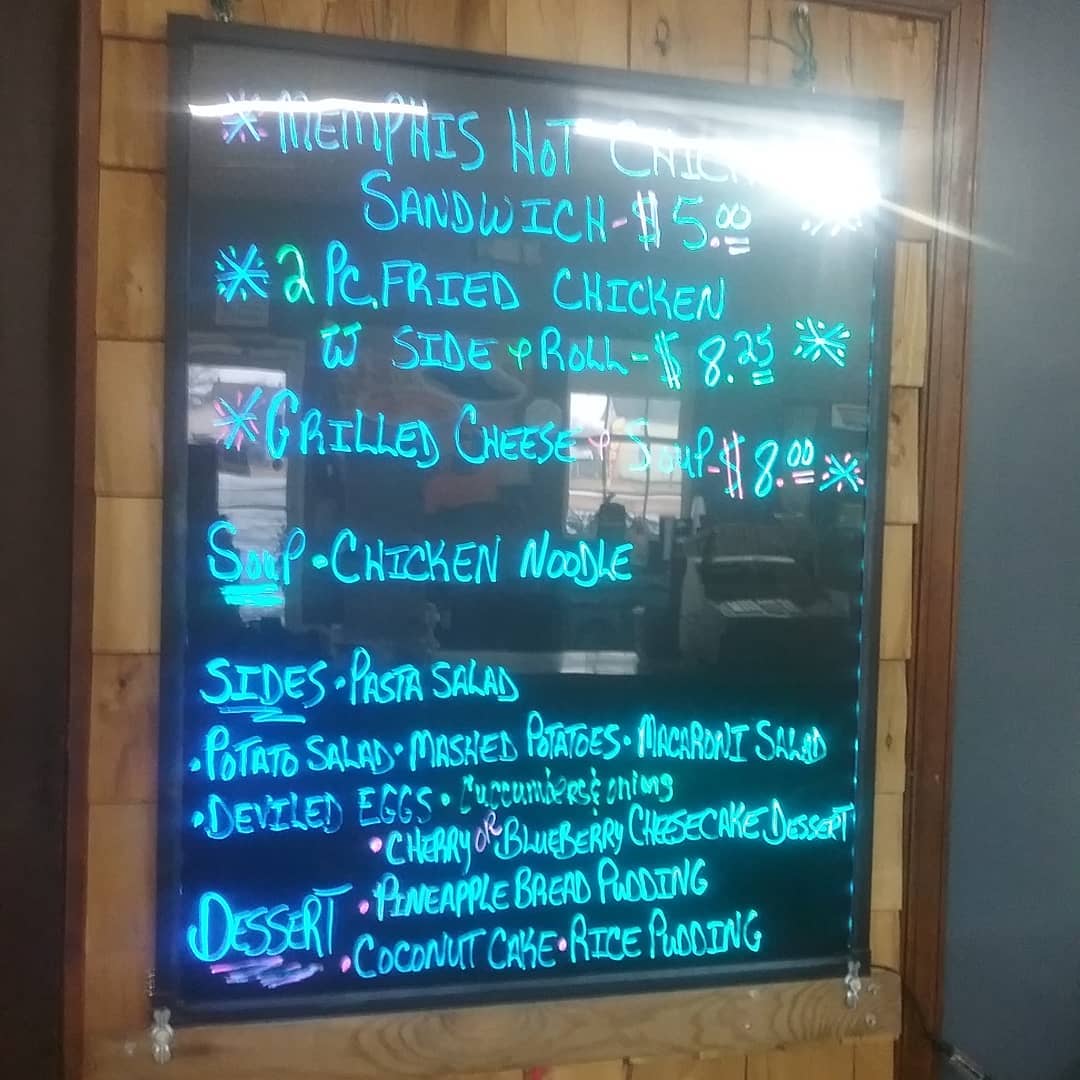 * MEMPHIS HOT CHICKEN
SANDWICH - $5.00 *
* 2 PC. FRIED CHICKEN
W SIDE & ROLL - $8.25 *
* GRILLED CHEESE & SOUP - $8.00 *
SOUP • CHICKEN NOODLE
SIDES • PASTA SALAD
• POTATO SALAD • MASHED POTATOES • MACARONI SALAD
• DEVILED EGGS • Cuccumbers & onions
• CHERRY OR BLUEBERRY CHEESECAKE DESSERT
DESSERT • PINEAPPLE BREAD PUDDING
• COCONUT CAKE • RICE PUDDING